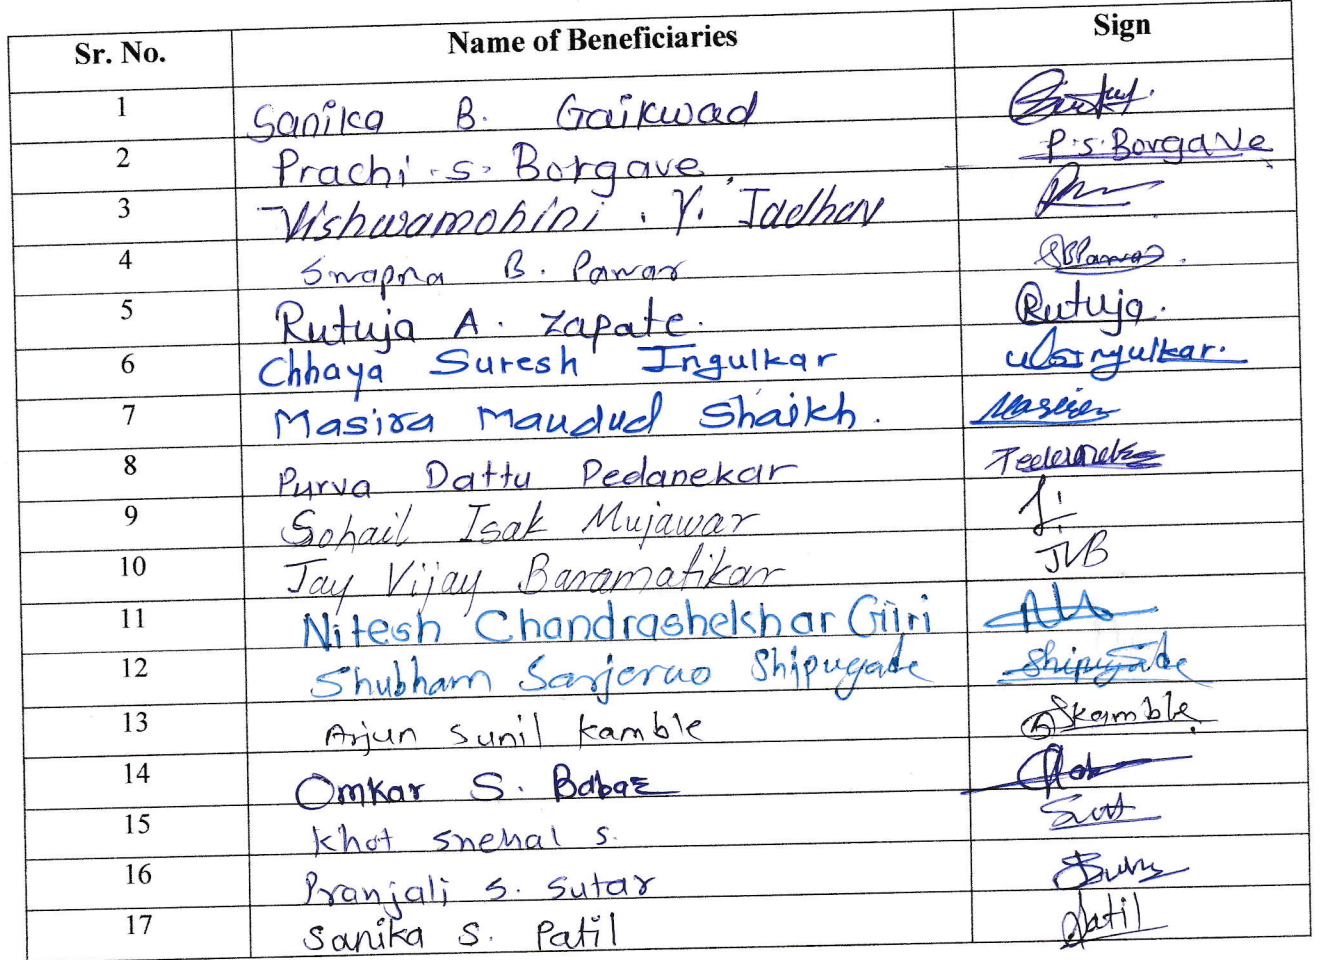 Sr. No. Name of Beneficiaries Sign
1 Sanika B. Gaikwad
2 Prachi .S. Borgave P.S.Borgave
3 Vishwamohini . Y. Jadhav
4 Swapna B. Pawar SBPawar
5 Rutuja A. Zapate. Rutuja.
6 Chhaya Suresh Ingulkar Ingulkar.
7 Masira Maudud Shaikh. Masira
8 Purva Dattu Pedanekar
9 Sohail Isak Mujawar
10 Jay Vijay Baramatikar JVB
11 Nitesh Chandrashekhar Giri
12 Shubham Sarjerao Shipugade Shipugade
13 Arjun Sunil Kamble ASkamble
14 Omkar S. Babar
15 Khot Snehal S.
16 Pranjali S. Sutar
17 Sanika S. Patil Patil